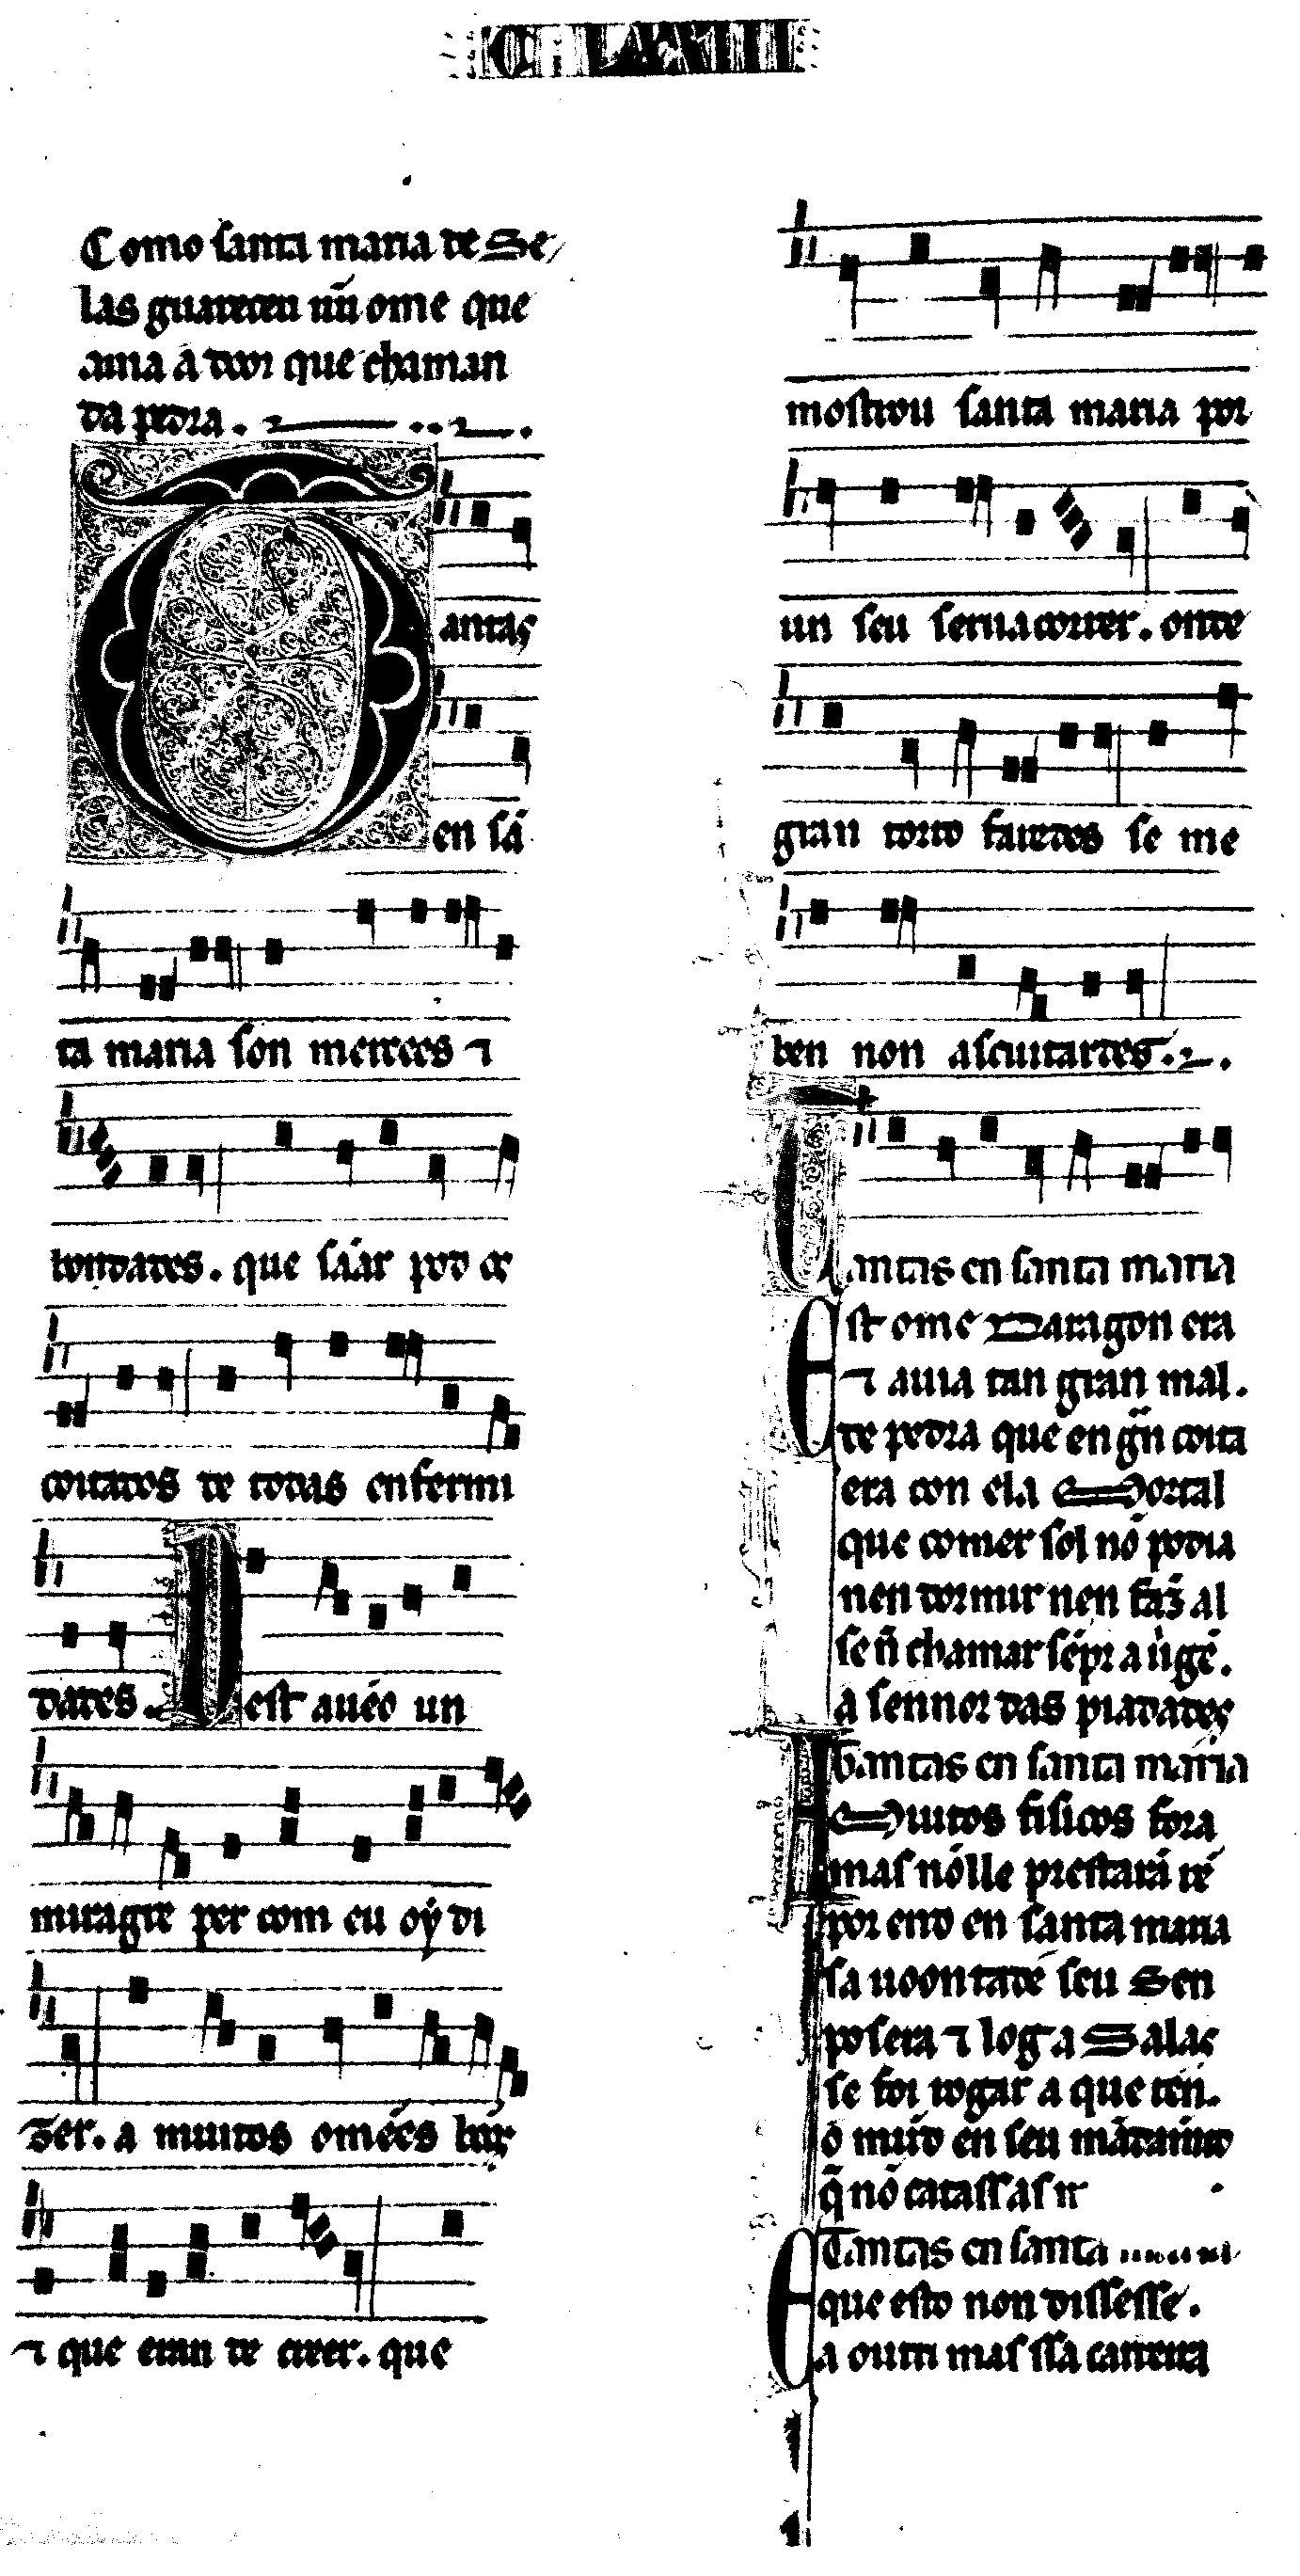 CLXXIII
Como santa maria de Se
las guareceu nũ ome que
auia a door que chaman
da pedra.
Tantas
en sã
ta maria son mercees ⁊
bondades. que sãar pod os
coitados de todas enfermi
dades. Dest auẽo un
miragre per com eu oý di
zer. a muitos omẽes bõos
⁊ que eran de creer. que
mostrou santa maria por
un seu seruacorrer. onde
gran torto faredes se me
ben non ascuitardes.
Tantas en santa maria
Est ome Daragon era
⁊ auia tan gran mal.
de pedra que en gñ coita
era con ela Mortal
que comer sol nõ podia
nen dormir nen faz̃ al
se ñ chamar sẽpr a uirgẽ.
a sennor das piadades
Tantas en santa maria
A Muitos fisicos fora
mas nõlle prestarã rẽ
por end en santa maria
sa uoontade seu Sen
posera ⁊ log a Salas
se foi rogar a que ten.
o mũd en seu mãdamẽto
q̃ nõ catass as ir
Tantas en santa
E que esto non dissesse.
a outri mas ssa carreira